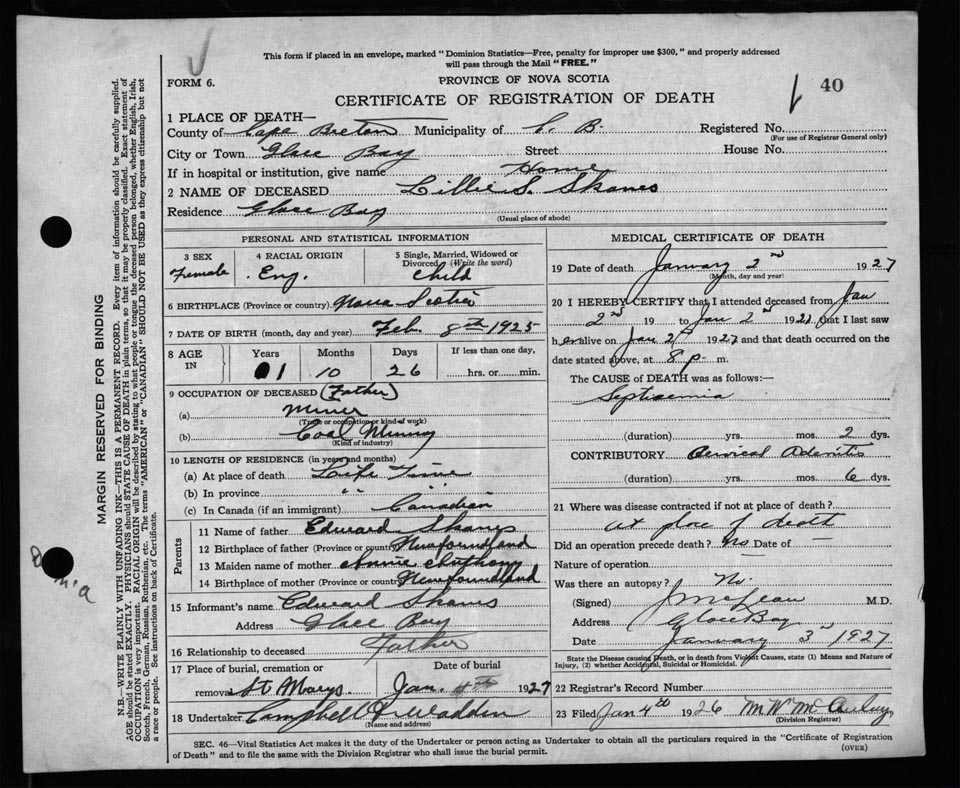 This form if placed in an envelope, marked "Dominion Statistics—Free, penalty for improper use $300," and properly addressed
will pass through the Mail "FREE."
FORM 6.
PROVINCE OF NOVA SCOTIA
CERTIFICATE OF REGISTRATION OF DEATH
40
1 PLACE OF DEATH—
County of Cape Breton Municipality of C. B. Registered No.
(For use of Registrar General only)
City or Town Glace Bay Street House No.
If in hospital or institution, give name Home
2 NAME OF DECEASED Lillie S. Skanes
Residence Glace Bay
(Usual place of abode)
PERSONAL AND STATISTICAL INFORMATION
3 SEX 4 RACIAL ORIGIN 5 Single, Married, Widowed or
Divorced (Write the word)
Female Eng. Child
6 BIRTHPLACE (Province or country) Nova Scotia
7 DATE OF BIRTH (month, day and year) Feb. 8th 1925
8 AGE IN Years Months Days If less than one day,
1 10 26 hrs. or min.
9 OCCUPATION OF DECEASED (Father)
(a) Miner
(Trade or occupation or kind of work)
(b) Coal Mining
(Kind of industry)
10 LENGTH OF RESIDENCE (in years and months)
(a) At place of death Life Time
(b) In province " "
(c) In Canada (if an immigrant) Canadian
Parents
11 Name of father Edward Skanes
12 Birthplace of father (Province or country) Newfoundland
13 Maiden name of mother Annie Anthony
14 Birthplace of mother (Province or country) Newfoundland
15 Informant's name Edward Skanes
Address Glace Bay
16 Relationship to deceased Father
17 Place of burial, cremation or Date of burial
removal St Marys Jan. 4th 1927
18 Undertaker Campbell
(Name and address)
MEDICAL CERTIFICATE OF DEATH
19 Date of death January 2nd 1927
(Month, day and year)
20 I HEREBY CERTIFY that I attended deceased from Jan
2nd 19 to Jan 2nd 1927 that I last saw
her alive on Jan 2nd 1927 and that death occurred on the
date stated above, at 8 p. m.
The CAUSE of DEATH was as follows:
Septicaemia
(duration) yrs. mos. 2 dys.
CONTRIBUTORY Cervical Adenitis
(duration) yrs. mos. 6 dys.
21 Where was disease contracted if not at place of death?
At place of death
Did an operation precede death? No Date of —
Nature of operation
Was there an autopsy? No.
(Signed) J McLean M.D.
Address Glace Bay
Date January 3rd 1927
State the Disease causing Death, or in death from Violent Causes, state (1) Means and Nature of
Injury, (2) whether Accidental, Suicidal or Homicidal.
22 Registrar's Record Number
23 Filed Jan 4th 1926 M W
(Division Registrar)
SEC. 46—Vital Statistics Act makes it the duty of the Undertaker or person acting as Undertaker to obtain all the particulars required in the "Certificate of Registration
of Death" and to file the same with the Division Registrar who shall issue the burial permit.
(OVER)
MARGIN RESERVED FOR BINDING
N.B.—WRITE PLAINLY WITH UNFADING INK—THIS IS A PERMANENT RECORD. Every item of information should be carefully supplied.
AGE should be stated EXACTLY. PHYSICIANS should STATE CAUSE OF DEATH in plain terms, so that it may be properly classified. Exact statement of
OCCUPATION is very important. RACIAL ORIGIN will be described by stating to what people or tongue the deceased person belonged, whether English, Irish,
Scotch, French, German, Russian, Ruthenian, etc. The terms "AMERICAN" or "CANADIAN" SHOULD NOT BE USED as they express citizenship but not
a race or people. See instructions on back of Certificate.